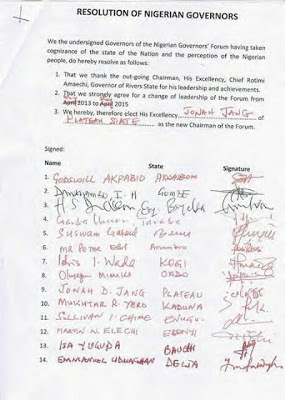 RESOLUTION OF NIGERIAN GOVERNORS
We the undersigned Governors of the Nigerian Governors' Forum having taken
cognizance of the state of the Nation and the perception of the Nigerian
people, do hereby resolve as follows:
1. That we thank the out-going Chairman, His Excellency, Chief Rotimi
Amaechi, Governor of Rivers State for his leadership and achievements.
2. That we strongly agree for a change of leadership of the Forum from
April 2013 to April 2015
3. We hereby, therefore elect His Excellency JONAH JANG of
PLATEAU STATE as the new Chairman of the Forum.
Signed:
Name State Signature
1. GODSWILL AKPABIO AKWAIBOM
2. DANKWAMBO, I. H GOMBE
3. H S
4. Garba Umar Taraba
5. SUSWAM Gabriel Benue
6. MR Peter Obi Anambra
7. Idris I. Wada KOGI
8. Olusegun Mimiko ONDO
9. JONAH D. JANG PLATEAU
10. MUKHTAR R. YERO KADUNA
11. SULLIVAN I. CHIME ENUGU
12. MARTIN N. ELECHI EBONYI
13. ISA YUGUDA BAUCHI
14. EMMANUEL UDUAGHAN DELTA